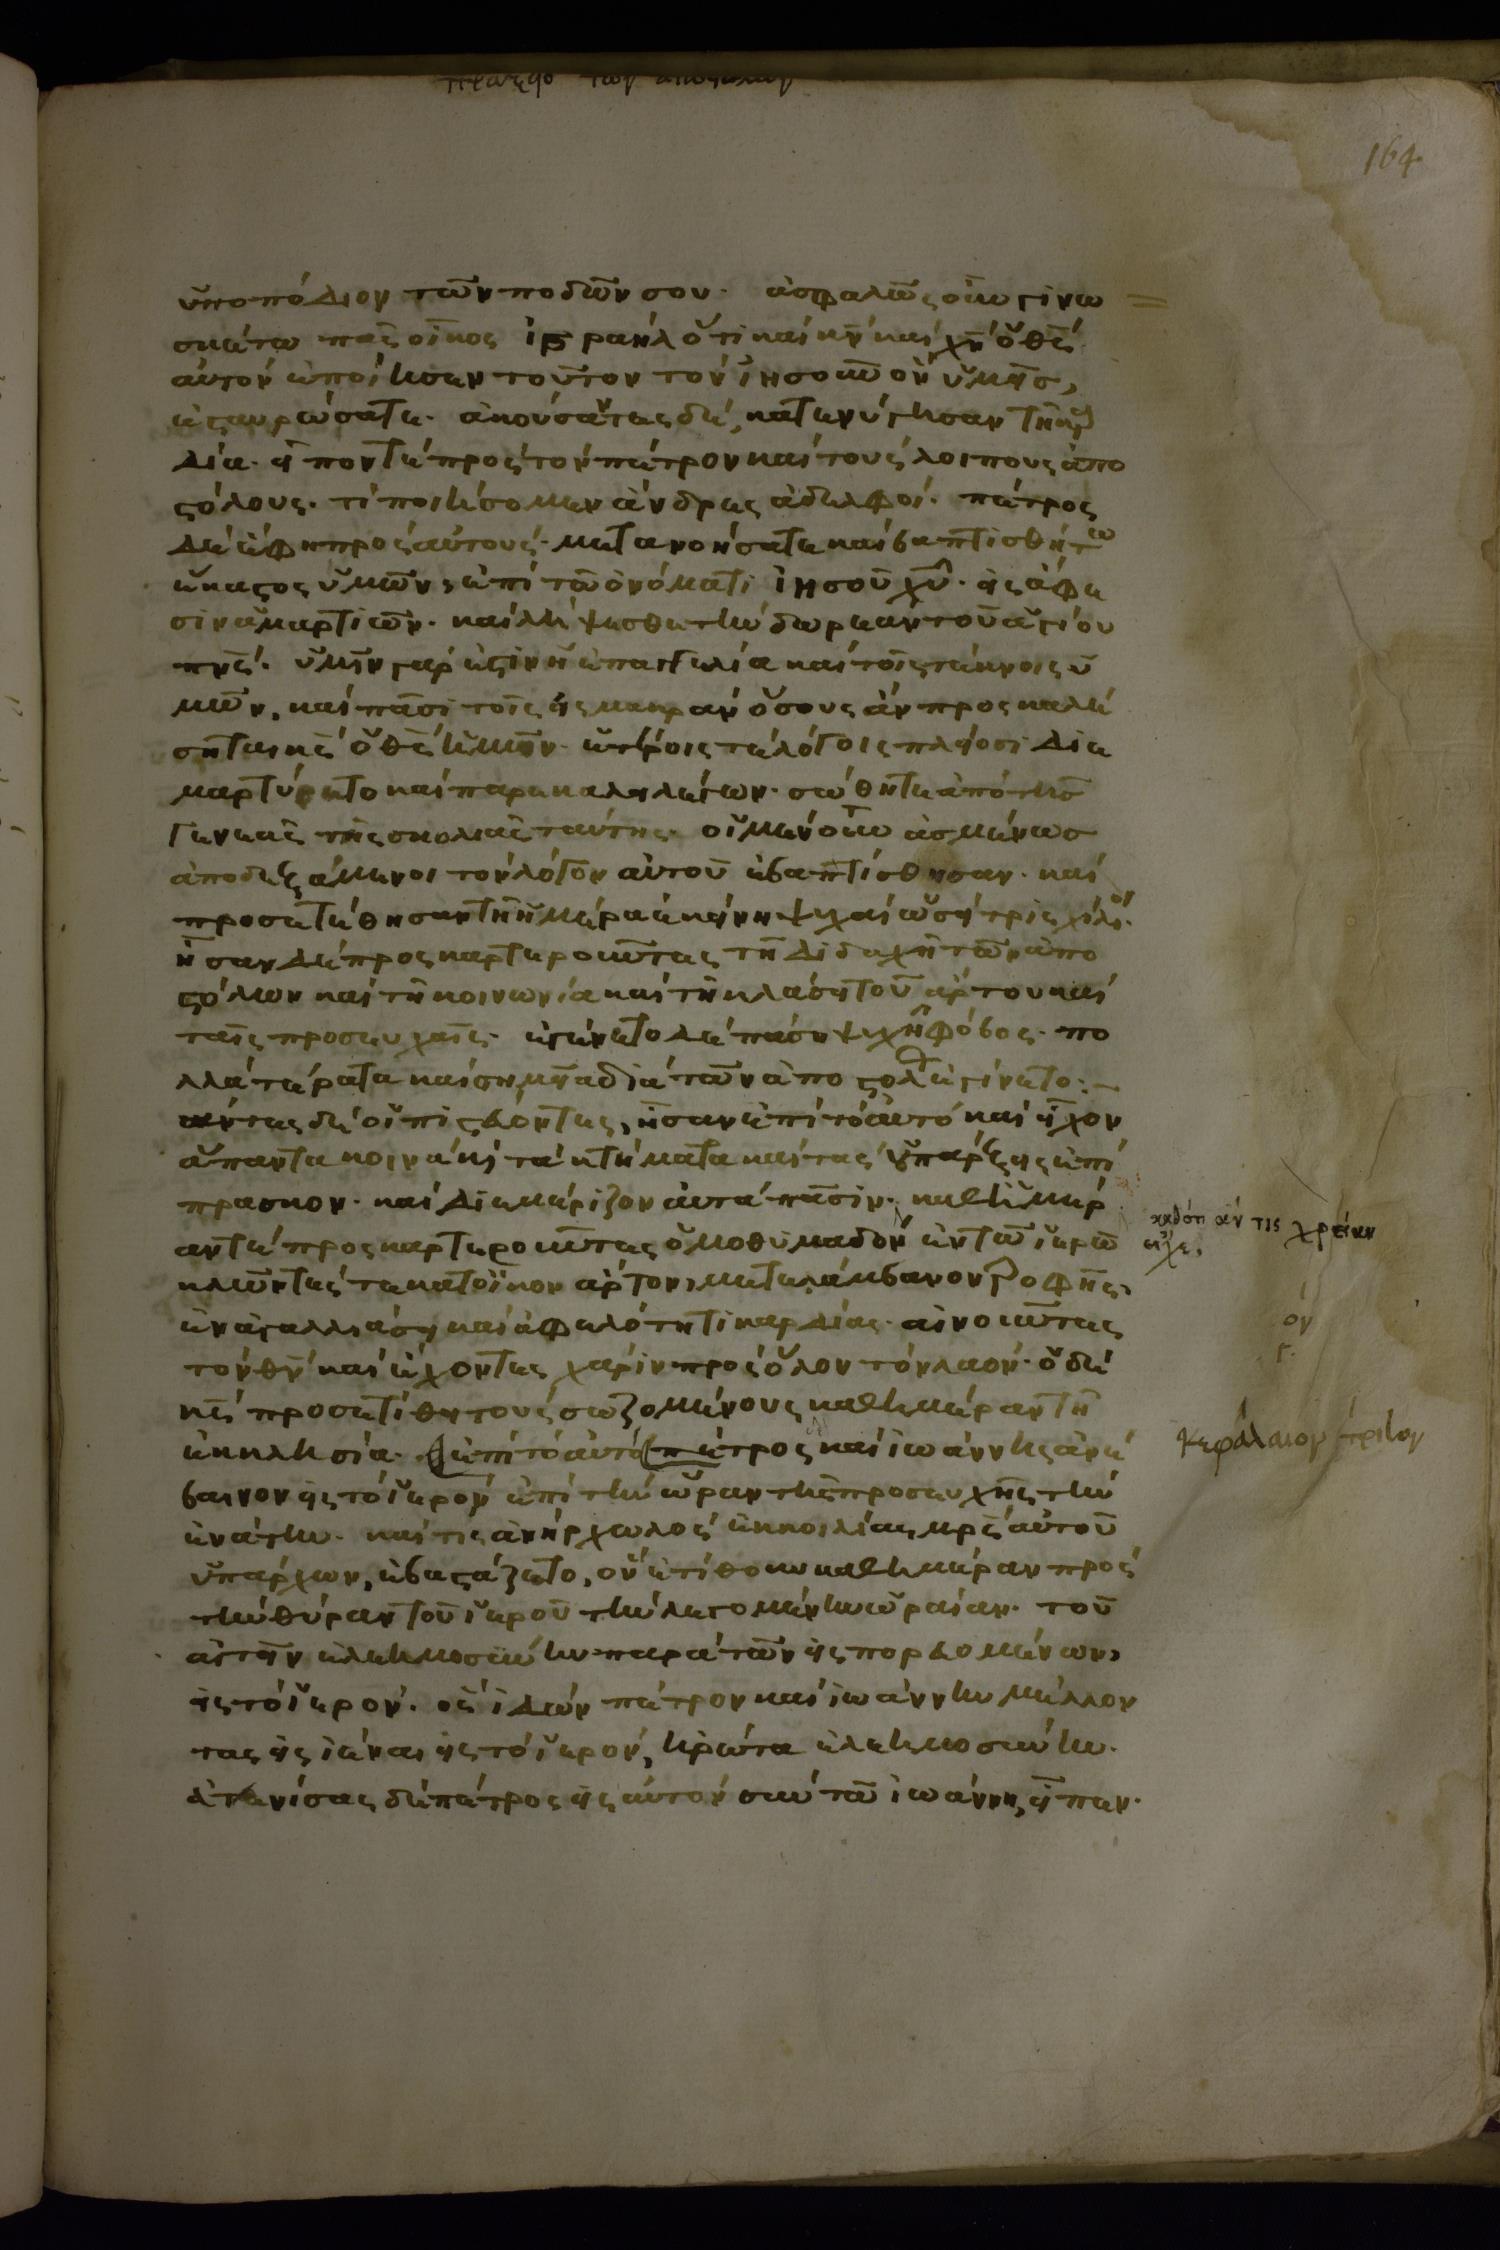 πραξεο των αποστολων
164
ὑποπόδιον τῶν ποδῶν σου. ἀσφαλῶς οὖν γινω
σκέτω πᾶς οἶκος ἰσραὴλ ὅτι καὶ κν καὶ χν ὁ θς
αὐτὸν ἐποίησεν τοῦτον τὸν ἰησοῦν ὃν ὑμεῖς,
ἐσταυρώσατε. ἀκούσαντες δὲ, κατενύγησαν τῆ καρ
δία. εἶπόν τε πρὸς τὸν πέτρον καὶ τοὺς λοιπους ἀπο
στόλους. τί ποιήσομεν ἄνδρες ἀδελφοί. πέτρος
δὲ ἔφη πρὸς αὐτούς. μετανοήσατε καὶ βαπτισθήτω
ἕκαστος ὑμῶν, ἐπὶ τῶ ὀνόματι ἰησοῦ χυ. εἰς ἄφε
σιν ἁμαρτιῶν. καὶ λήψεσθε τὴν δωρεαν τοῦ ἁγίου
πνς. ὑμῖν γάρ ἐστιν ἡ ἐπαγγελία καὶ τοῖς τέκνοις ὑ
μῶν, καὶ πᾶσι τοῖς εἰς μακραν ὅσους ἂν προσκαλέ
σηται κς ὁ θς ἡμῶν. ἑτέροις τε λόγοις πλείοσι διε
μαρτύρετο καὶ παρεκάλει λέγων. σώθητε ἀπὸ τῆς
γενεᾶς τῆς σκολιᾶς ταύτης. οἱ μὲν οὖν ἀσμένως
ἀποδεξάμενοι τὸν λόγον αὐτοῦ ἐβαπτίσθησαν. καὶ
προσετέθησαν τῆ ἡμέρα ἐκείνη ψυχαὶ ὡσεὶ τρισχίλι
ἦσαν δὲ προσκαρτεροῦντες τῆ διδαχῆ τῶν ἀπο
στόλων καὶ τῆ κοινωνία καὶ τῆ κλάσει τοῦ ἄρτου καὶ
ταῖς προσευχαῖς. ἐγένετο δὲ πάση ψυχῆ φόβος. πο
λλά τε ρατα καὶ σημεῖα διὰ τῶν ἀποστολ ἐγίνετο:
πάντες δὲ οἱ πιστεύοντες, ἦσαν ἐπὶ τὸ ἀυτὸ καὶ εἶχον
ἅπαντα κοινά κ τὰ κτήματα καὶ τὰς ὑπάρξεις ἐπί
πρασκον. καὶ διεμέριζον ἀυτὰ πᾶσιν. καθ ἡμέρ
αν τὲ προσκαρτεροῦντες ὁμοθυμαδὸν ἐν τῶ ἱερῶ
κλῶντές τε κατοῖκον ἄρτον, μετελάμβανον τροφῆς,
ἐν ἀγαλλιάσει καὶ ἀφελότητι καρδίας. αἰνοῦντες
τὸν θν καὶ ἔχοντες χάριν πρὸς ὅλον τὸν λαόν. ὁ δὲ
κς προσετίθει τοὺς σωζομένους καθ ἡμέραν τῆ
ἐκκλησία. ἐπὶ τὸ ἀυτὸ πέτρος καὶ ἰωάννης ἀνέ
βαινον εἰς τὸ ἱερὸν ἐπὶ τὴν ὥραν τῆς προσευχῆς τὴν
ἐνάτην. καί τις ἀνὴρ χωλὸς ἐκ κοιλίας μρς αὐτοῦ
ὑπάρχων, ἐβαστάζετο, ὃν ἐτίθουν καθ ἡμέραν πρὸς
τὴν θύραν τοῦ ἱεροῦ τὴν λεγομένην ὡραίαν. τοῦ
αἰτεῖν ἐλεημοσύνην παρὰ τῶν εἰσπορευομένων,
εἰς τὸ ἱερόν. ὃς ἰδὼν πέτρον καὶ ἰωάννην μέλλον
τας εἰσιέναι εἰς τὸ ἱερὸν, ἠρώτα ἐλεημοσύνην.
ἀτενίσας δὲ πέτρος εἰς αὐτὸν σὺν τῶ ἰωάννη, εἶπεν.
καθότι ἄν τις χρείαν
εἶχε,
όν
γ.
Κεφάλαιον τρίτον